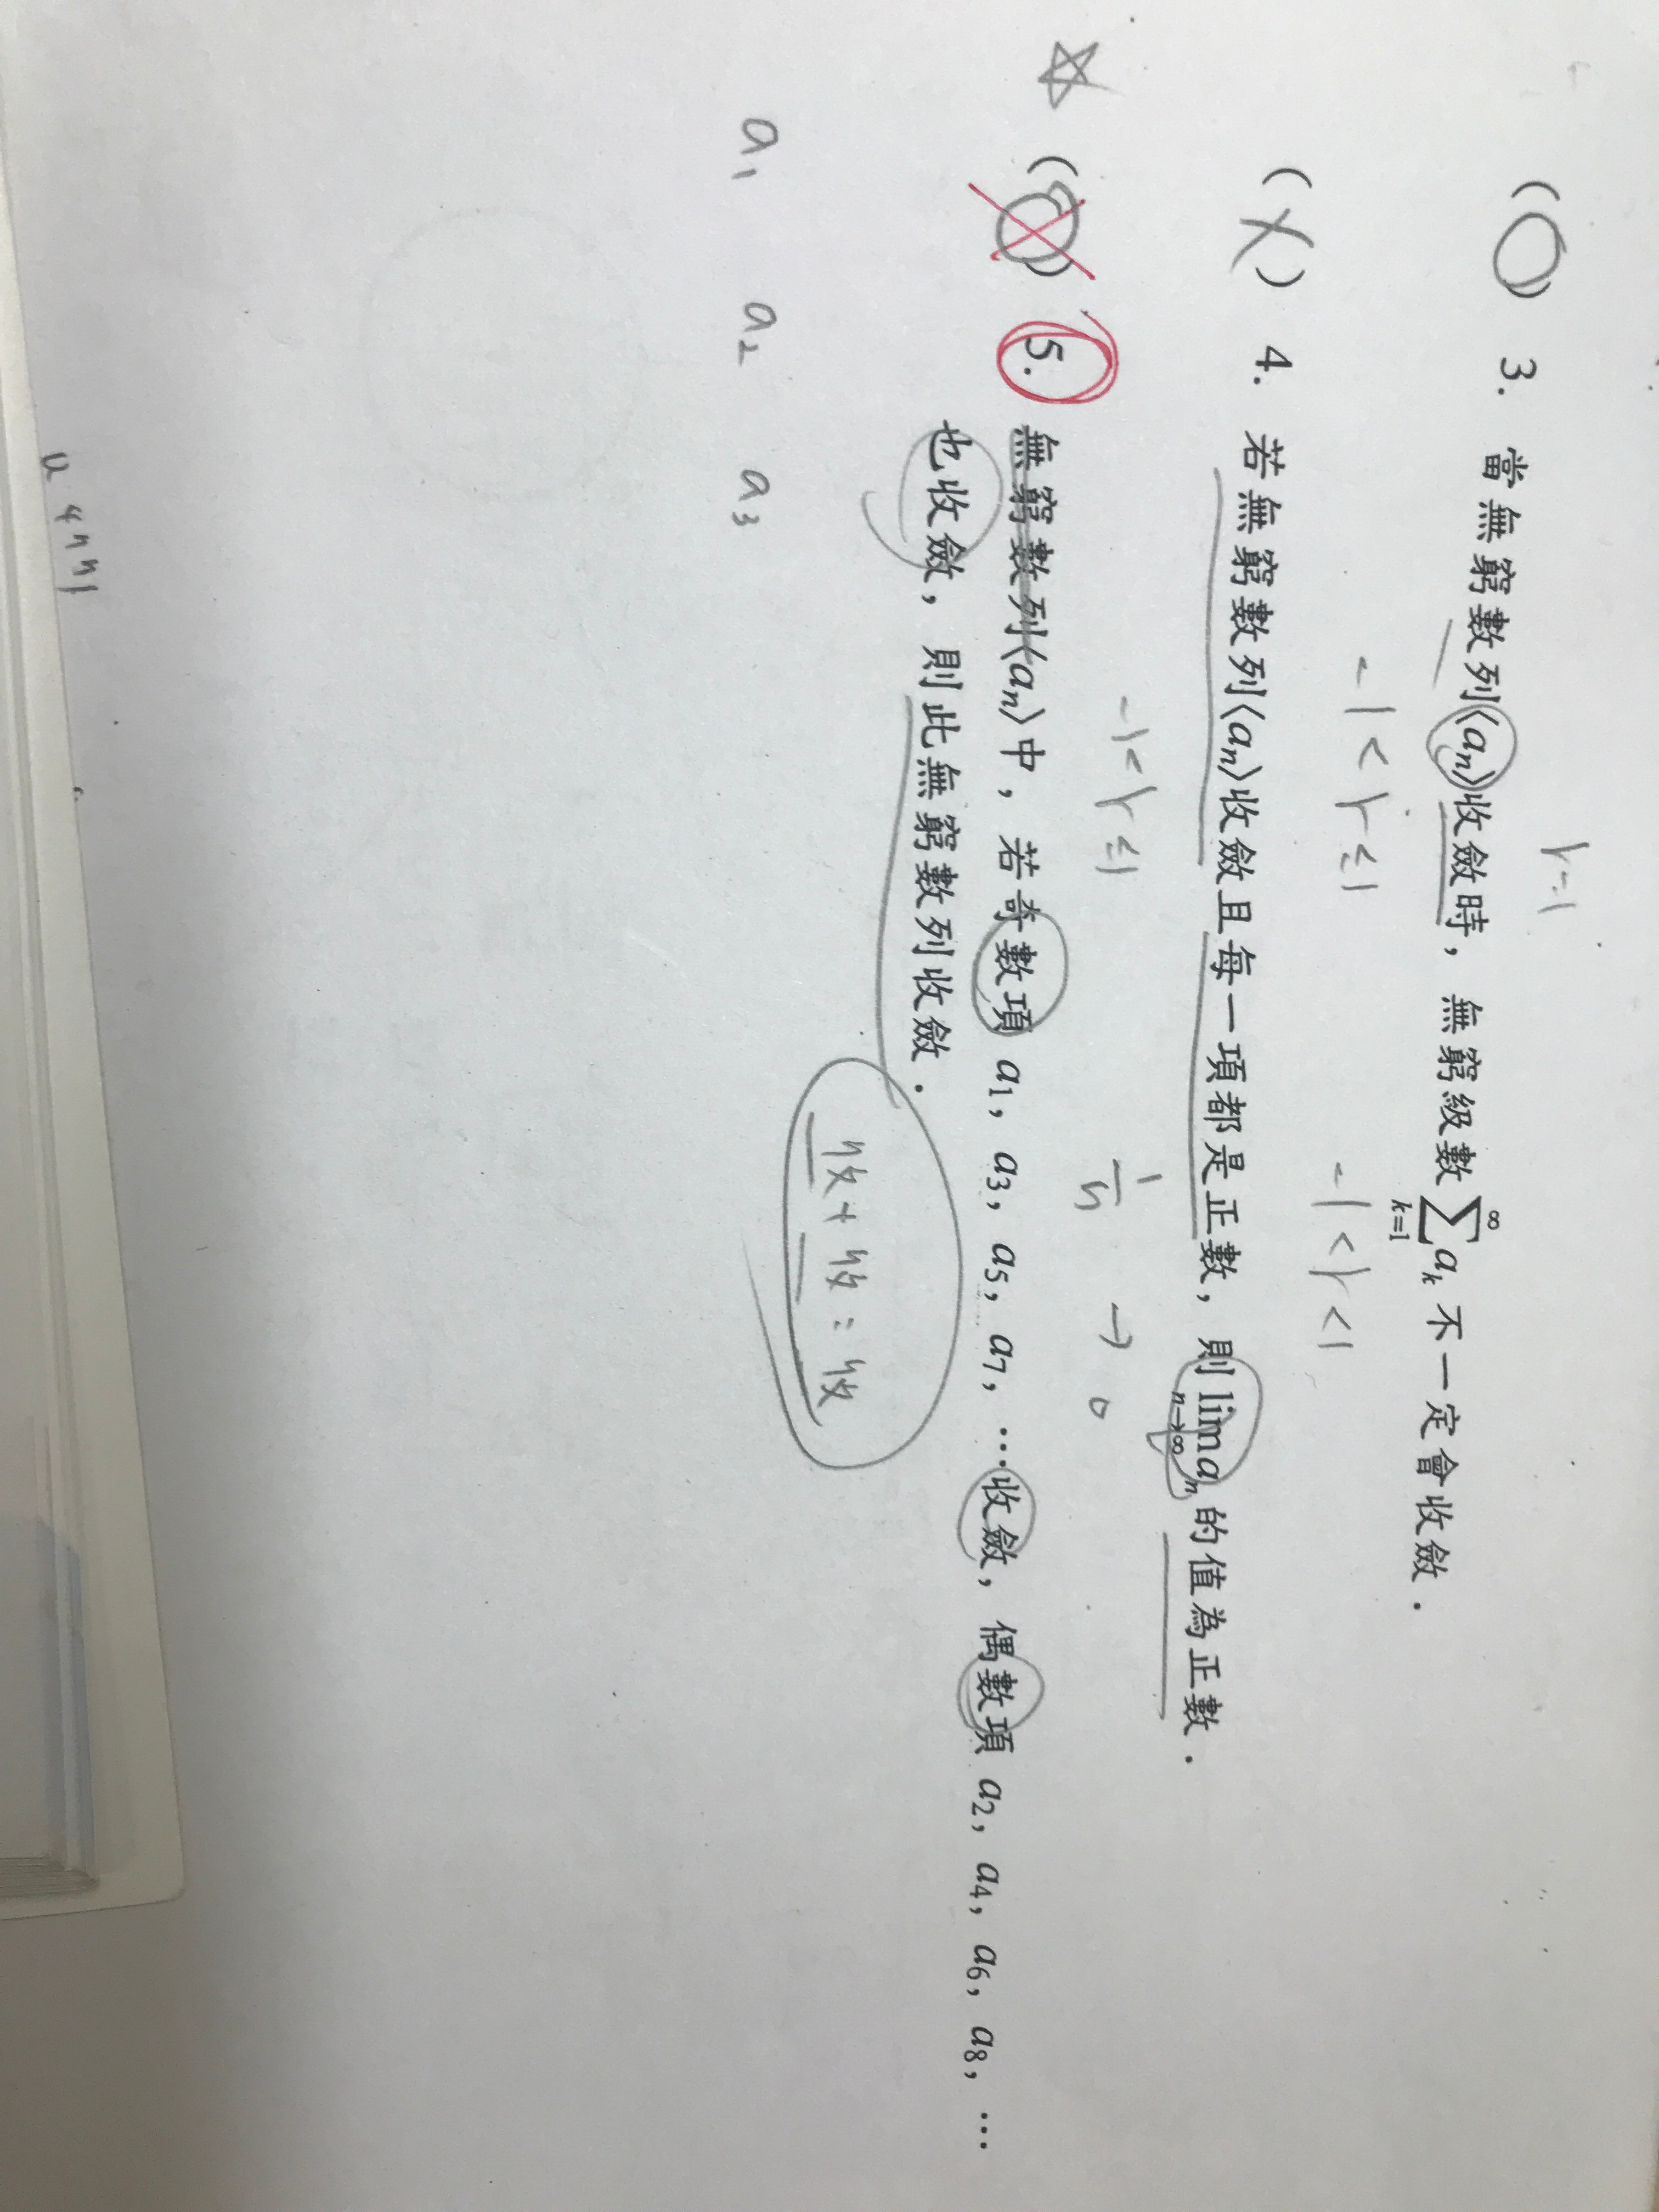 r=1
(O) 3. 當無窮數列⟨aₙ⟩收斂時，無窮級數 ∑_{k=1}^{∞} aₖ 不一定會收斂．
-1<r≤1 -1<r<1
(X) 4. 若無窮數列⟨aₙ⟩收斂且每一項都是正數，則 lim_{n→∞} aₙ 的值為正數．
-1<r≤1 1/n → 0
☆ (O) 5. 無窮數列⟨aₙ⟩中，若奇數項 a₁，a₃，a₅，a₇，…收斂，偶數項 a₂，a₄，a₆，a₈，…
也收斂，則此無窮數列收斂．
收+收=收
a₁ a₂ a₃